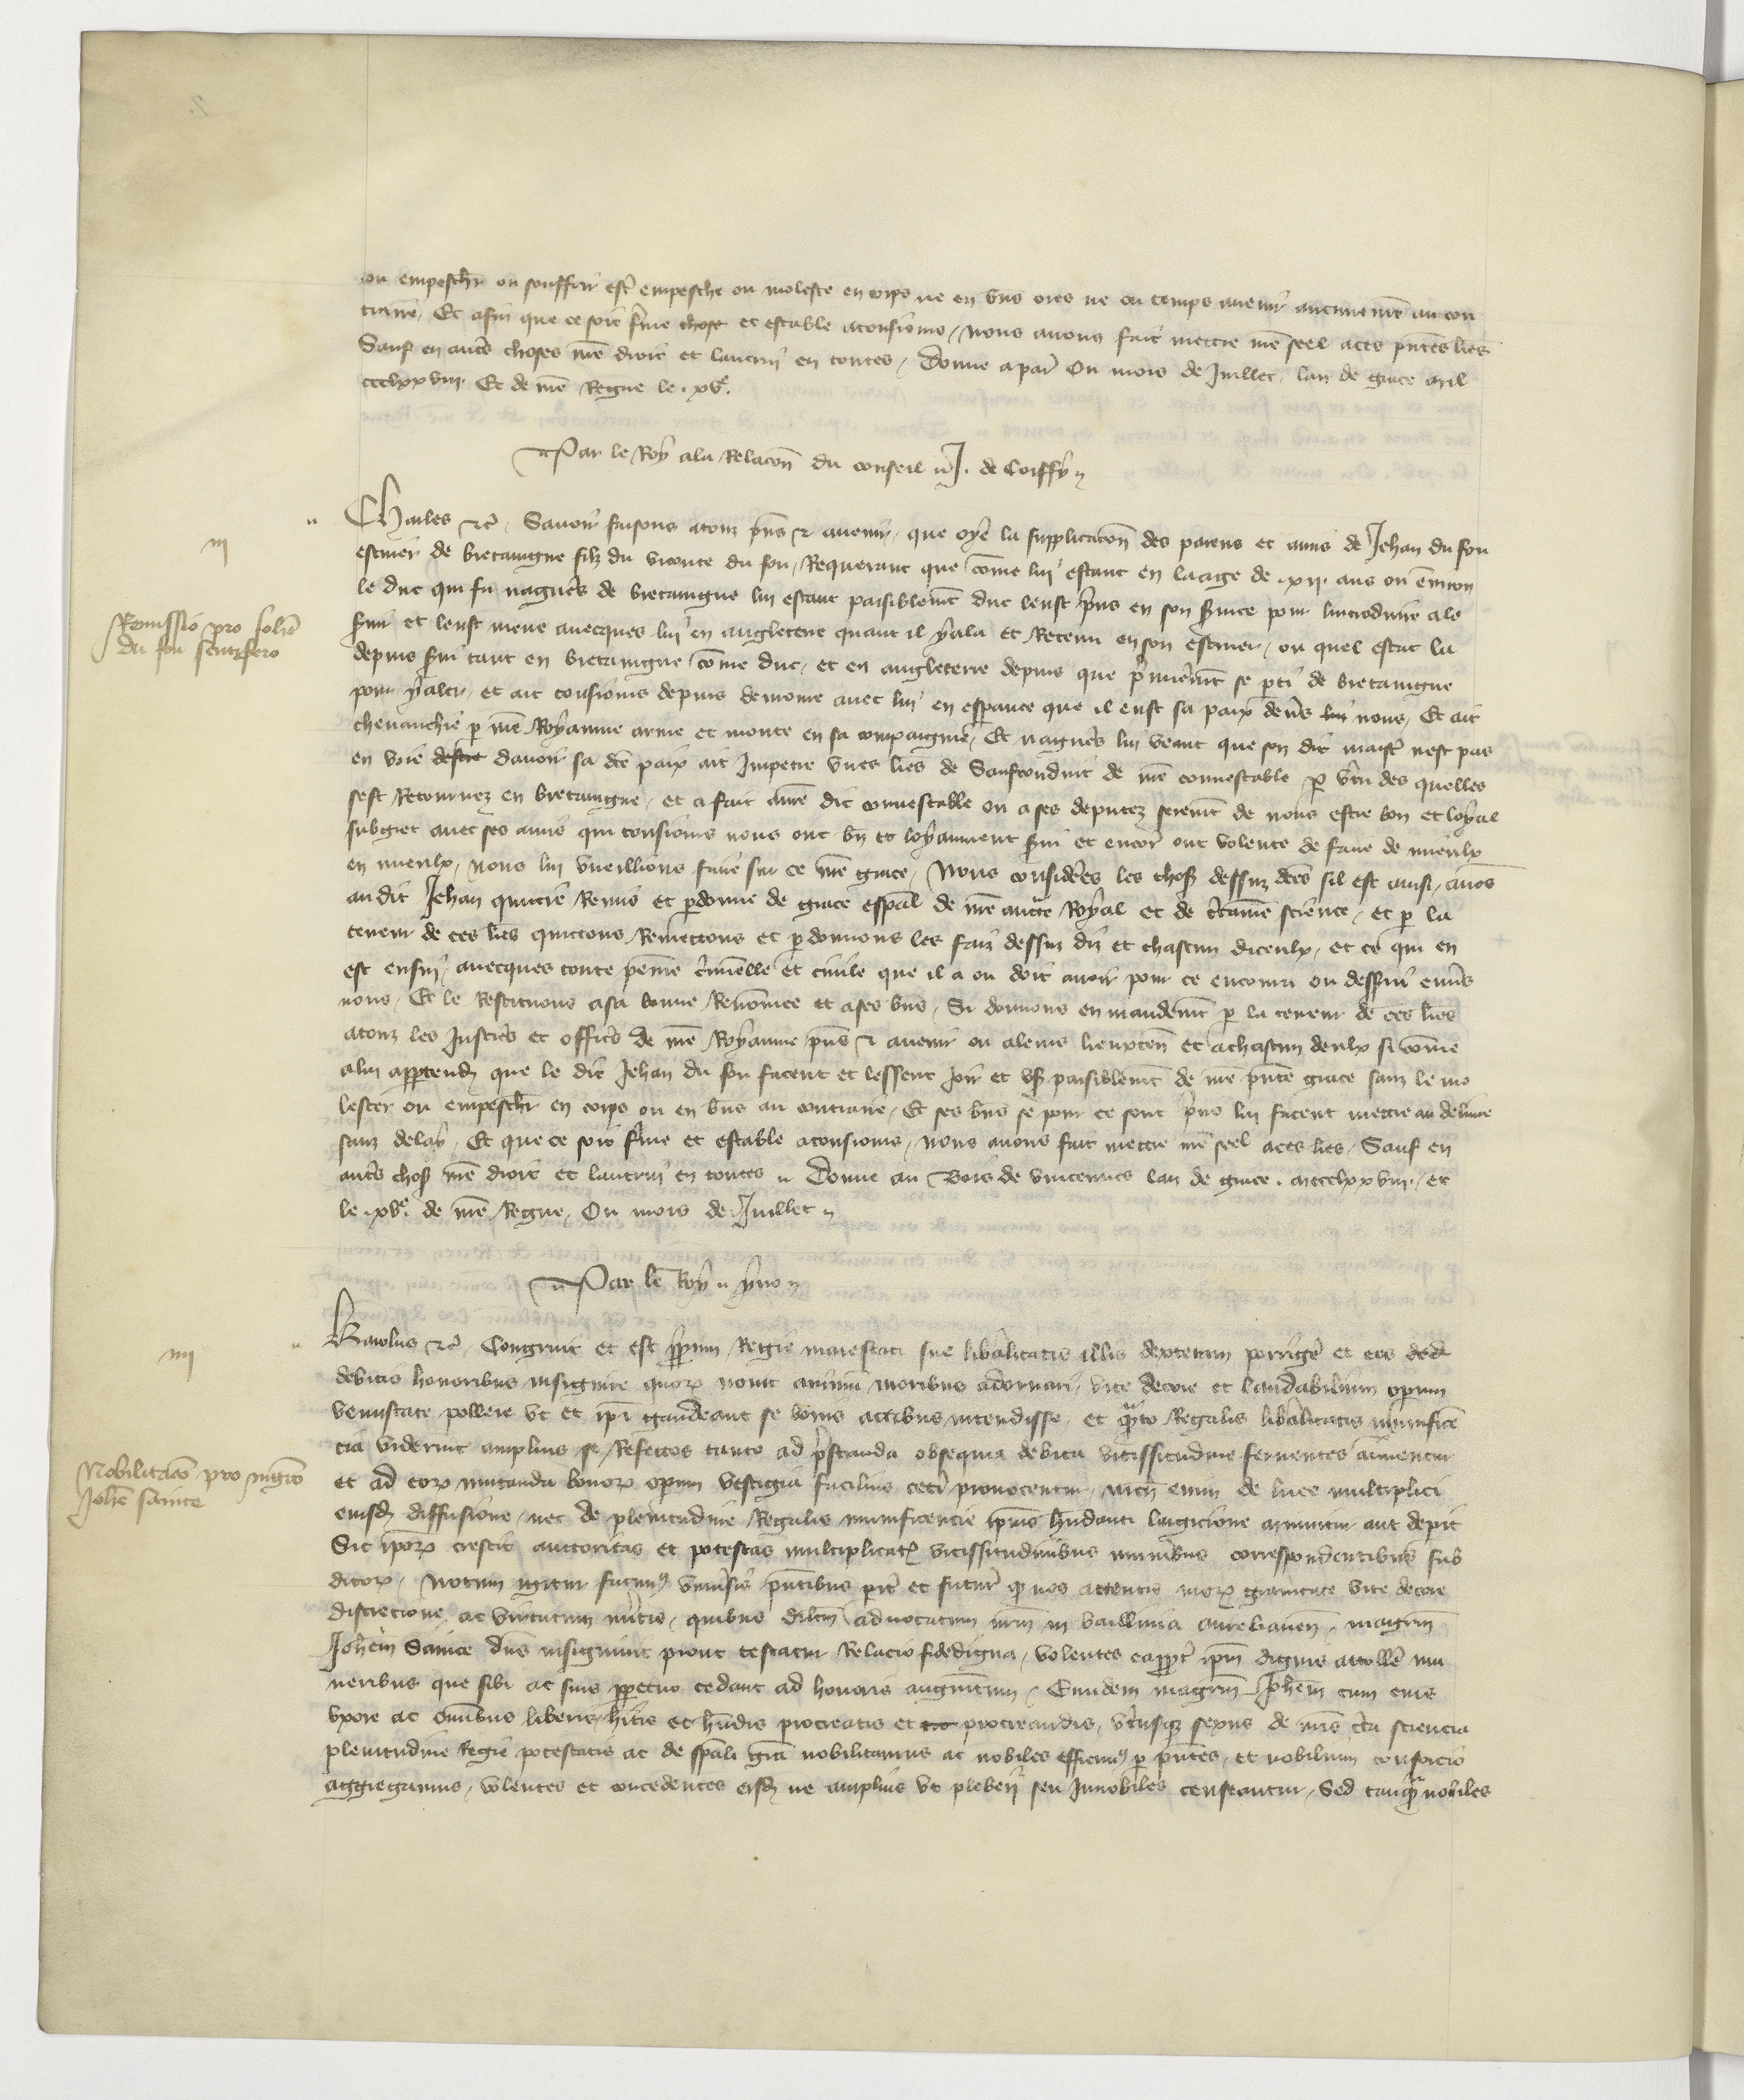 ou empescher ou souffrir estre empesche ou moleste en corps ne en biens ores ne ou temps avenir aucunement au con
traire. Et afin que ce soit ferme chose et estable a tousjours, nous avons fait mettre nostre seel a ces presentes lettres
Sauf en autres choses nostre droit et lautrui en toutes. Donne a paris Ou mois de Juillet. lan de grace mil
ccclxxviii. Et de nostre Regne le .xve.
Par le Roy a la Relacion du conseil J. de Coiffy
iii
Charles etc. Savoir faisons a touz presens et avenir, que oye la supplicacion des parens et amis de Jehan du fou
escuier de bretaingne filz du viconte du fou, Requerant que comme lui estant en laage de .xii. ans ou environ
le duc qui fu nagueres de bretaingne lui estant paisiblement duc leust prins en son service pour lintroduire a le
servir et leust mene avecques lui en angleterre quant il y ala et Retenu en son escuier, ou quel estat la
Remissio pro Johanne
du fou scutifero
depuis servi tant en bretaingne comme duc, et en angleterre depuis que premierement se parti de bretaingne
pour y aler, et ait tousjours depuis demoure avec lui en esperance que il eust sa paix devers lui nous, Et ait
chevauchie par nostre Royaume arme et monte en sa compaignie, Et nagueres lui veant que son dit maistre nest pas
en voie destre davoir sa dicte paix ait Impetre unes lettres de Saufconduit de nostre connestable, par vertu des quelles
sest Retournez en bretaingne, et a fait a nostre dit connestable ou a ses deputez serement de nous estre bon et loyal
subgiet avec ses amis qui tousjours nous ont bien et loyaument servi et encores ont volente de faire de mieulx
en mieulx, Nous lui vueillions faire sur ce nostre grace, Nous considerees les choses dessuz dictes sil est ainsi, avons
au dit Jehan quictie Remis et pardonne de grace especial de nostre auctorite Royal et de certaine science, et par la
teneur de ces lettres quictons Remettons et pardonnons les faiz dessuz diz et chascun diceulx, et ce qui en
est ensuy, avecques toute peine criminelle et civile que il a ou doit avoir pour ce encouru ou desservi envers
nous, Et le Restituons a sa bonne Renommee et a ses biens, Si donnons en mandement par la teneur de ces lettres
a touz les Justiciers et officiers de nostre Royaume presens et avenir ou a leurs lieuxtenans et a chascun deulx si comme
a lui appartendra que le dit Jehan du fou facent et lessent Joir et user paisiblement de nostre presente grace sanz le mo
lester ou empescher en corps ou en biens au contraire, Et ses biens se pour ce sont prins lui facent mettre au delivre
sanz delay, Et que ce soit ferme et estable a tousjours, nous avons fait mettre nostre seel a ces lettres, Sauf en
autres choses nostre droit et lautrui en toutes. Donne au Bois de vincennes lan de grace .mccclxxviii. et
le .xve. de nostre Regne, Ou mois de Juillet
Par le Roy yvo
iiii
Karolus etc. Congruit et est proprium Regie maiestati sue liberalitatis illis dexteram porrigere et eos ded
debitis honoribus insignire quorum novit animum moribus adornari, vite decore et laudabilium operum
venustate pollere ut et ipsi gaudeant se bonis actibus intendisse, et quanto Regalis liberalitatis munificen
cia viderint amplius se Refectos tanto ad prestanda obsequia debita vicissitudine ferventes animentur
Nobilitacio pro magistro
Johanne Saince
et ad eorum imitanda bonorum operum vestigia facilius ceteri provocentur, nichil enim de luce multiplici
eiusdem diffusione, nec de plenitudine Regalis munificencie ipsius habundanti largicione minuitur aut deperit
Sic ipsorum crescit auctoritas et potestas multiplicatur vicissitudinibus muneribus correspondentibus sub
ditorum, Notum igitur facimus universis presentibus pariter et futuris quod nos attentis morum gravitate vite decore
discrecione ac virtutum meritis, quibus dilectum advocatum nostrum in baillivia aurelianensi, magistrum
Johannem Saince dominus insignivit prout testatur Relacio fidedigna, volentes eapropter ipsum dignis attollere mu
neribus que sibi ac suis perpetuo cedant ad honoris augmentum, Eundem magistrum Johannem cum eius
uxore ac omnibus liberis, habitis et habendis procreatis et pro procreandis, utriusque sexus de nostris certa sciencia
plenitudine Regie potestatis ac de speciali gracia nobilitamus ac nobiles efficimus per presentes, et nobilium consorcio
aggregamus, volentes et concedentes eisdem ne amplius ut plebeii seu Innobiles censeantur, Sed tanquam nobiles